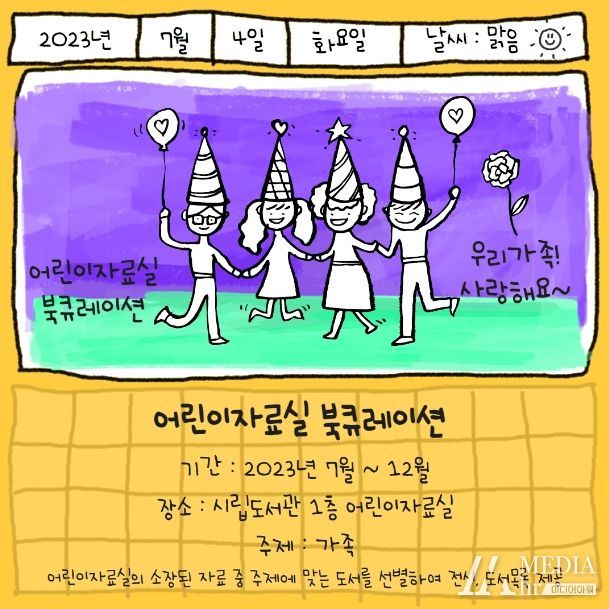 2023년 7월 4일 화요일 날씨 : 맑음
어린이자료실
북큐레이션
우리가족!
사랑해요~
어린이자료실 북큐레이션
기간 : 2023년 7월 ~ 12월
장소 : 시립도서관 1층 어린이자료실
주제 : 가족
어린이자료실의 소장된 자료 중 주제에 맞는 도서를 선별하여 전시, 도서목록 제공
MEDIA
미디어아워